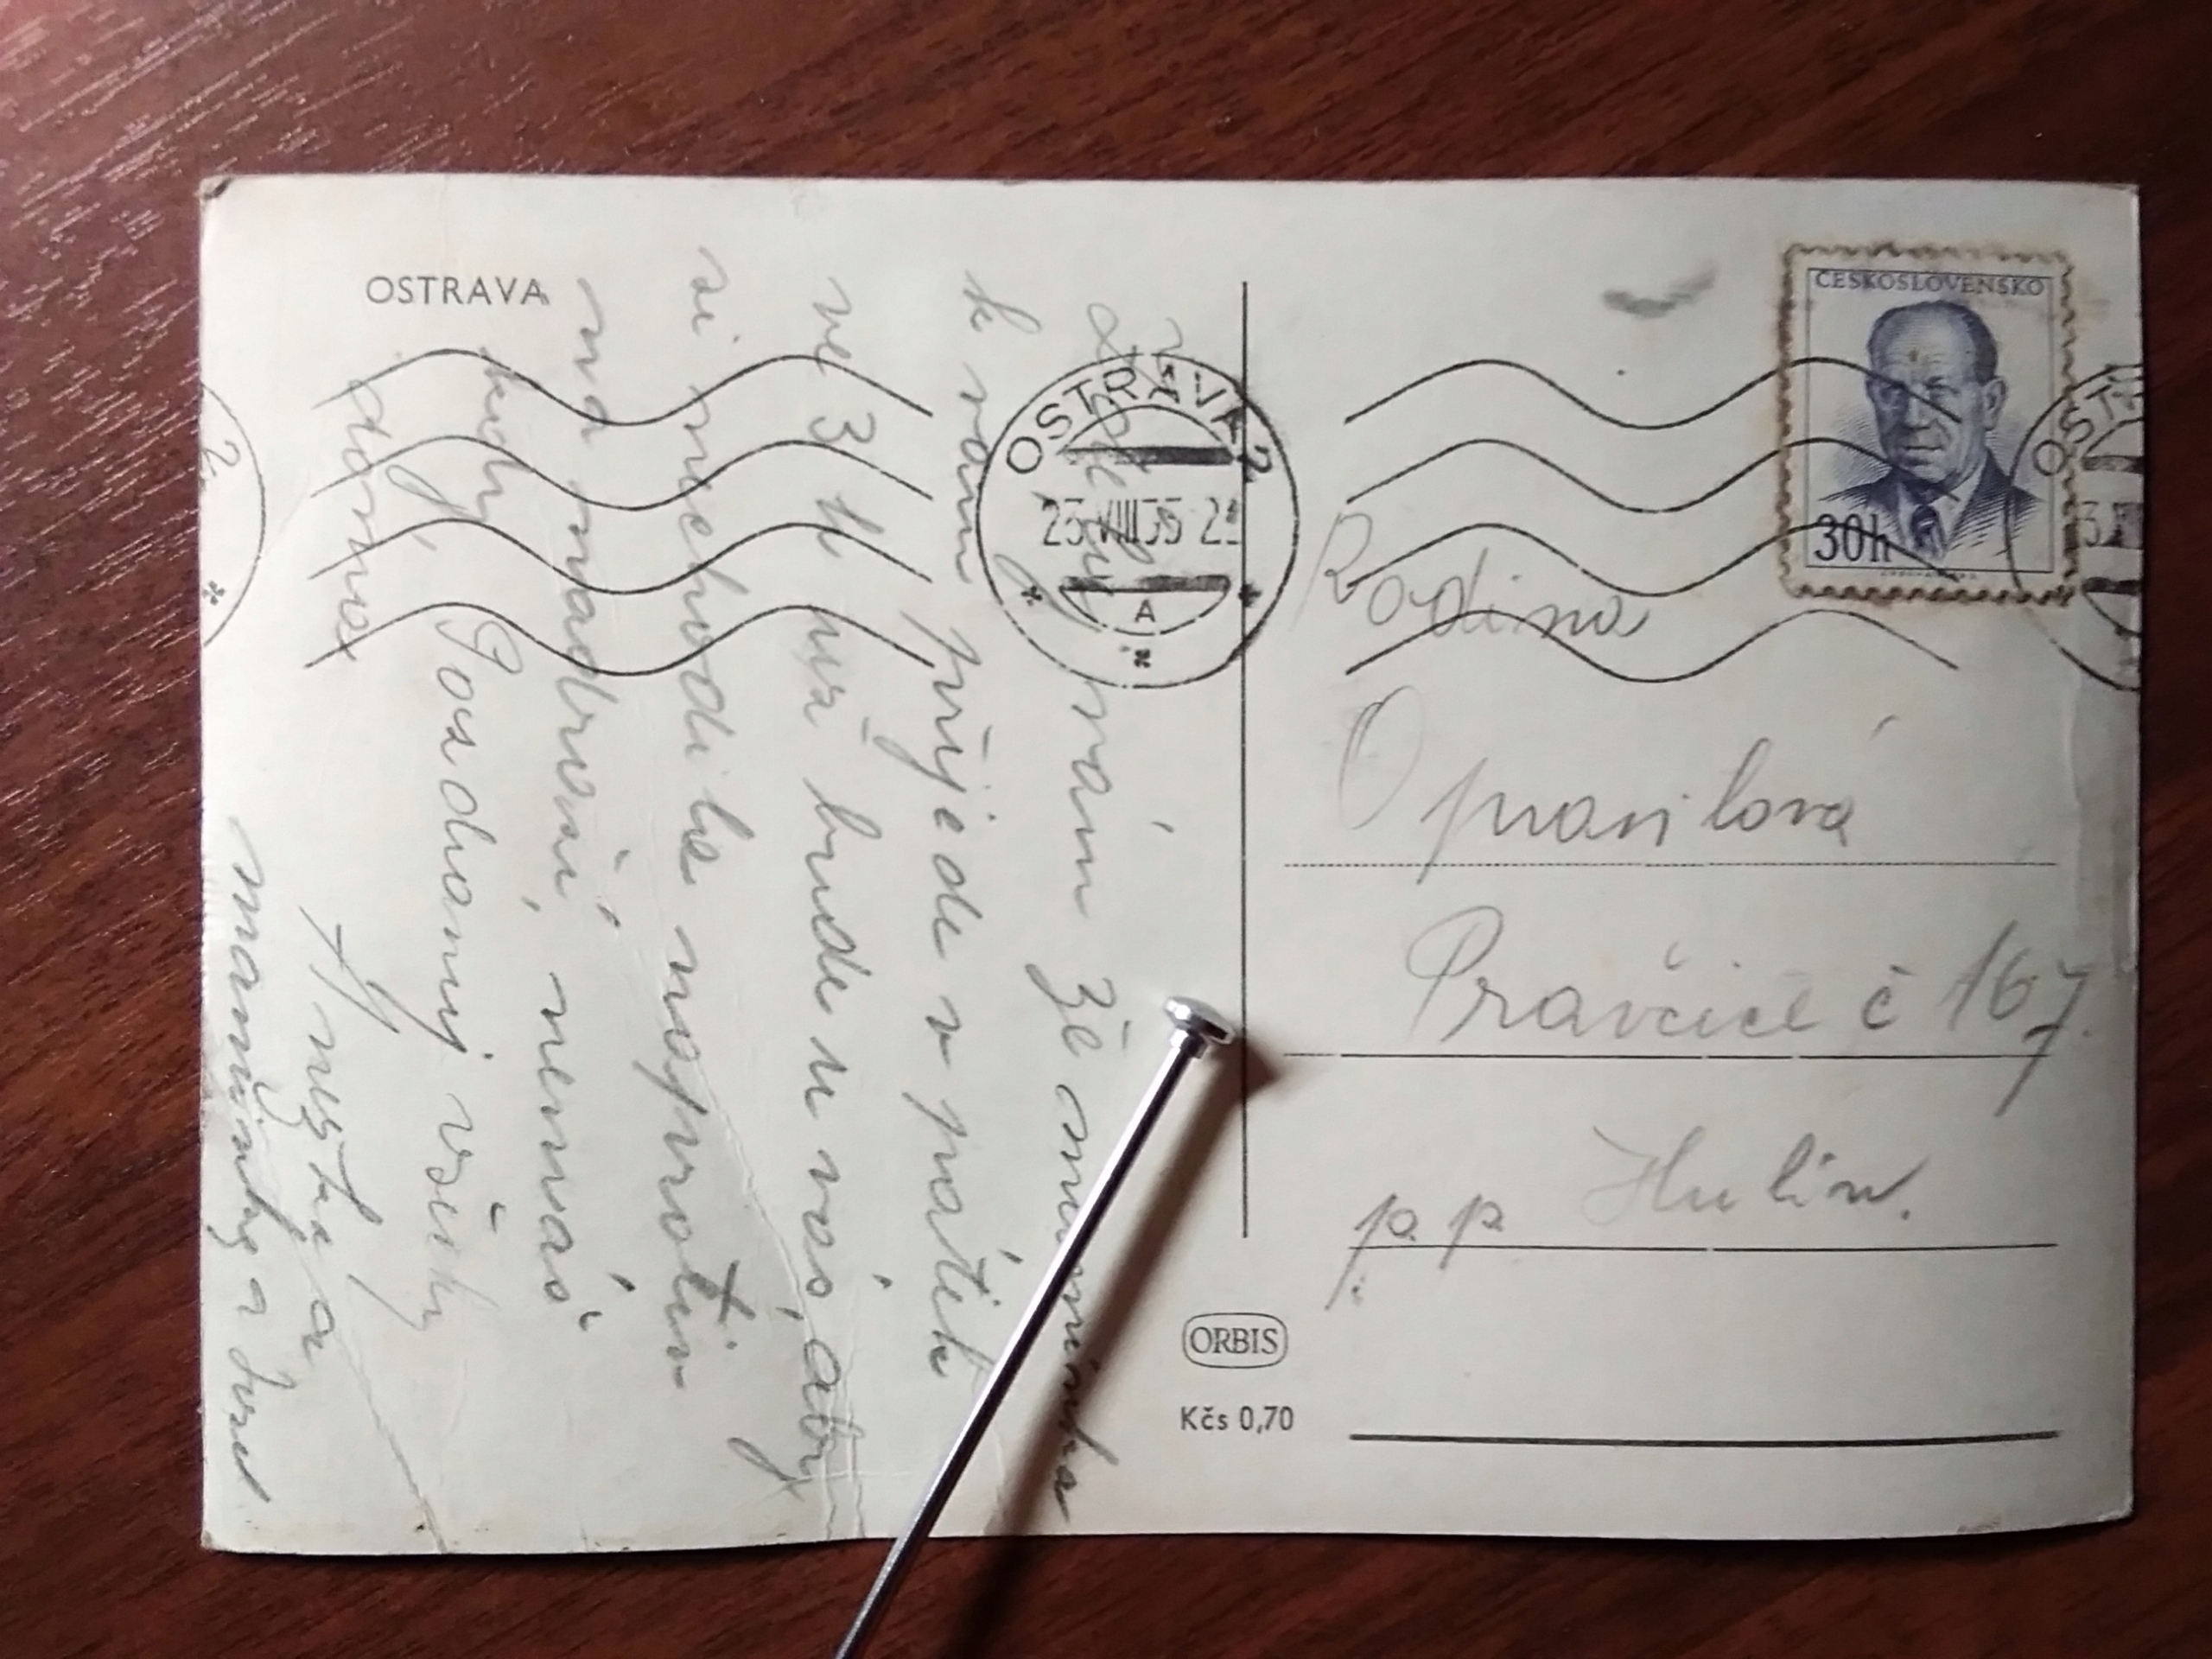 OSTRAVA
vám že maminka
k vám přijede v pátek
ve 3 h už bude u vás, aby
si nechodili naproti
na nádraží, nemáš
kdy. Pozdravuj všecky
doma
a
maminky a
OSTRAVA 2
VIII 55
A
ČESKOSLOVENSKO
30h
Rodina
Opravilová
Pravčice č 167.
p. p. Hulín.
ORBIS
Kčs 0,70
OST
2